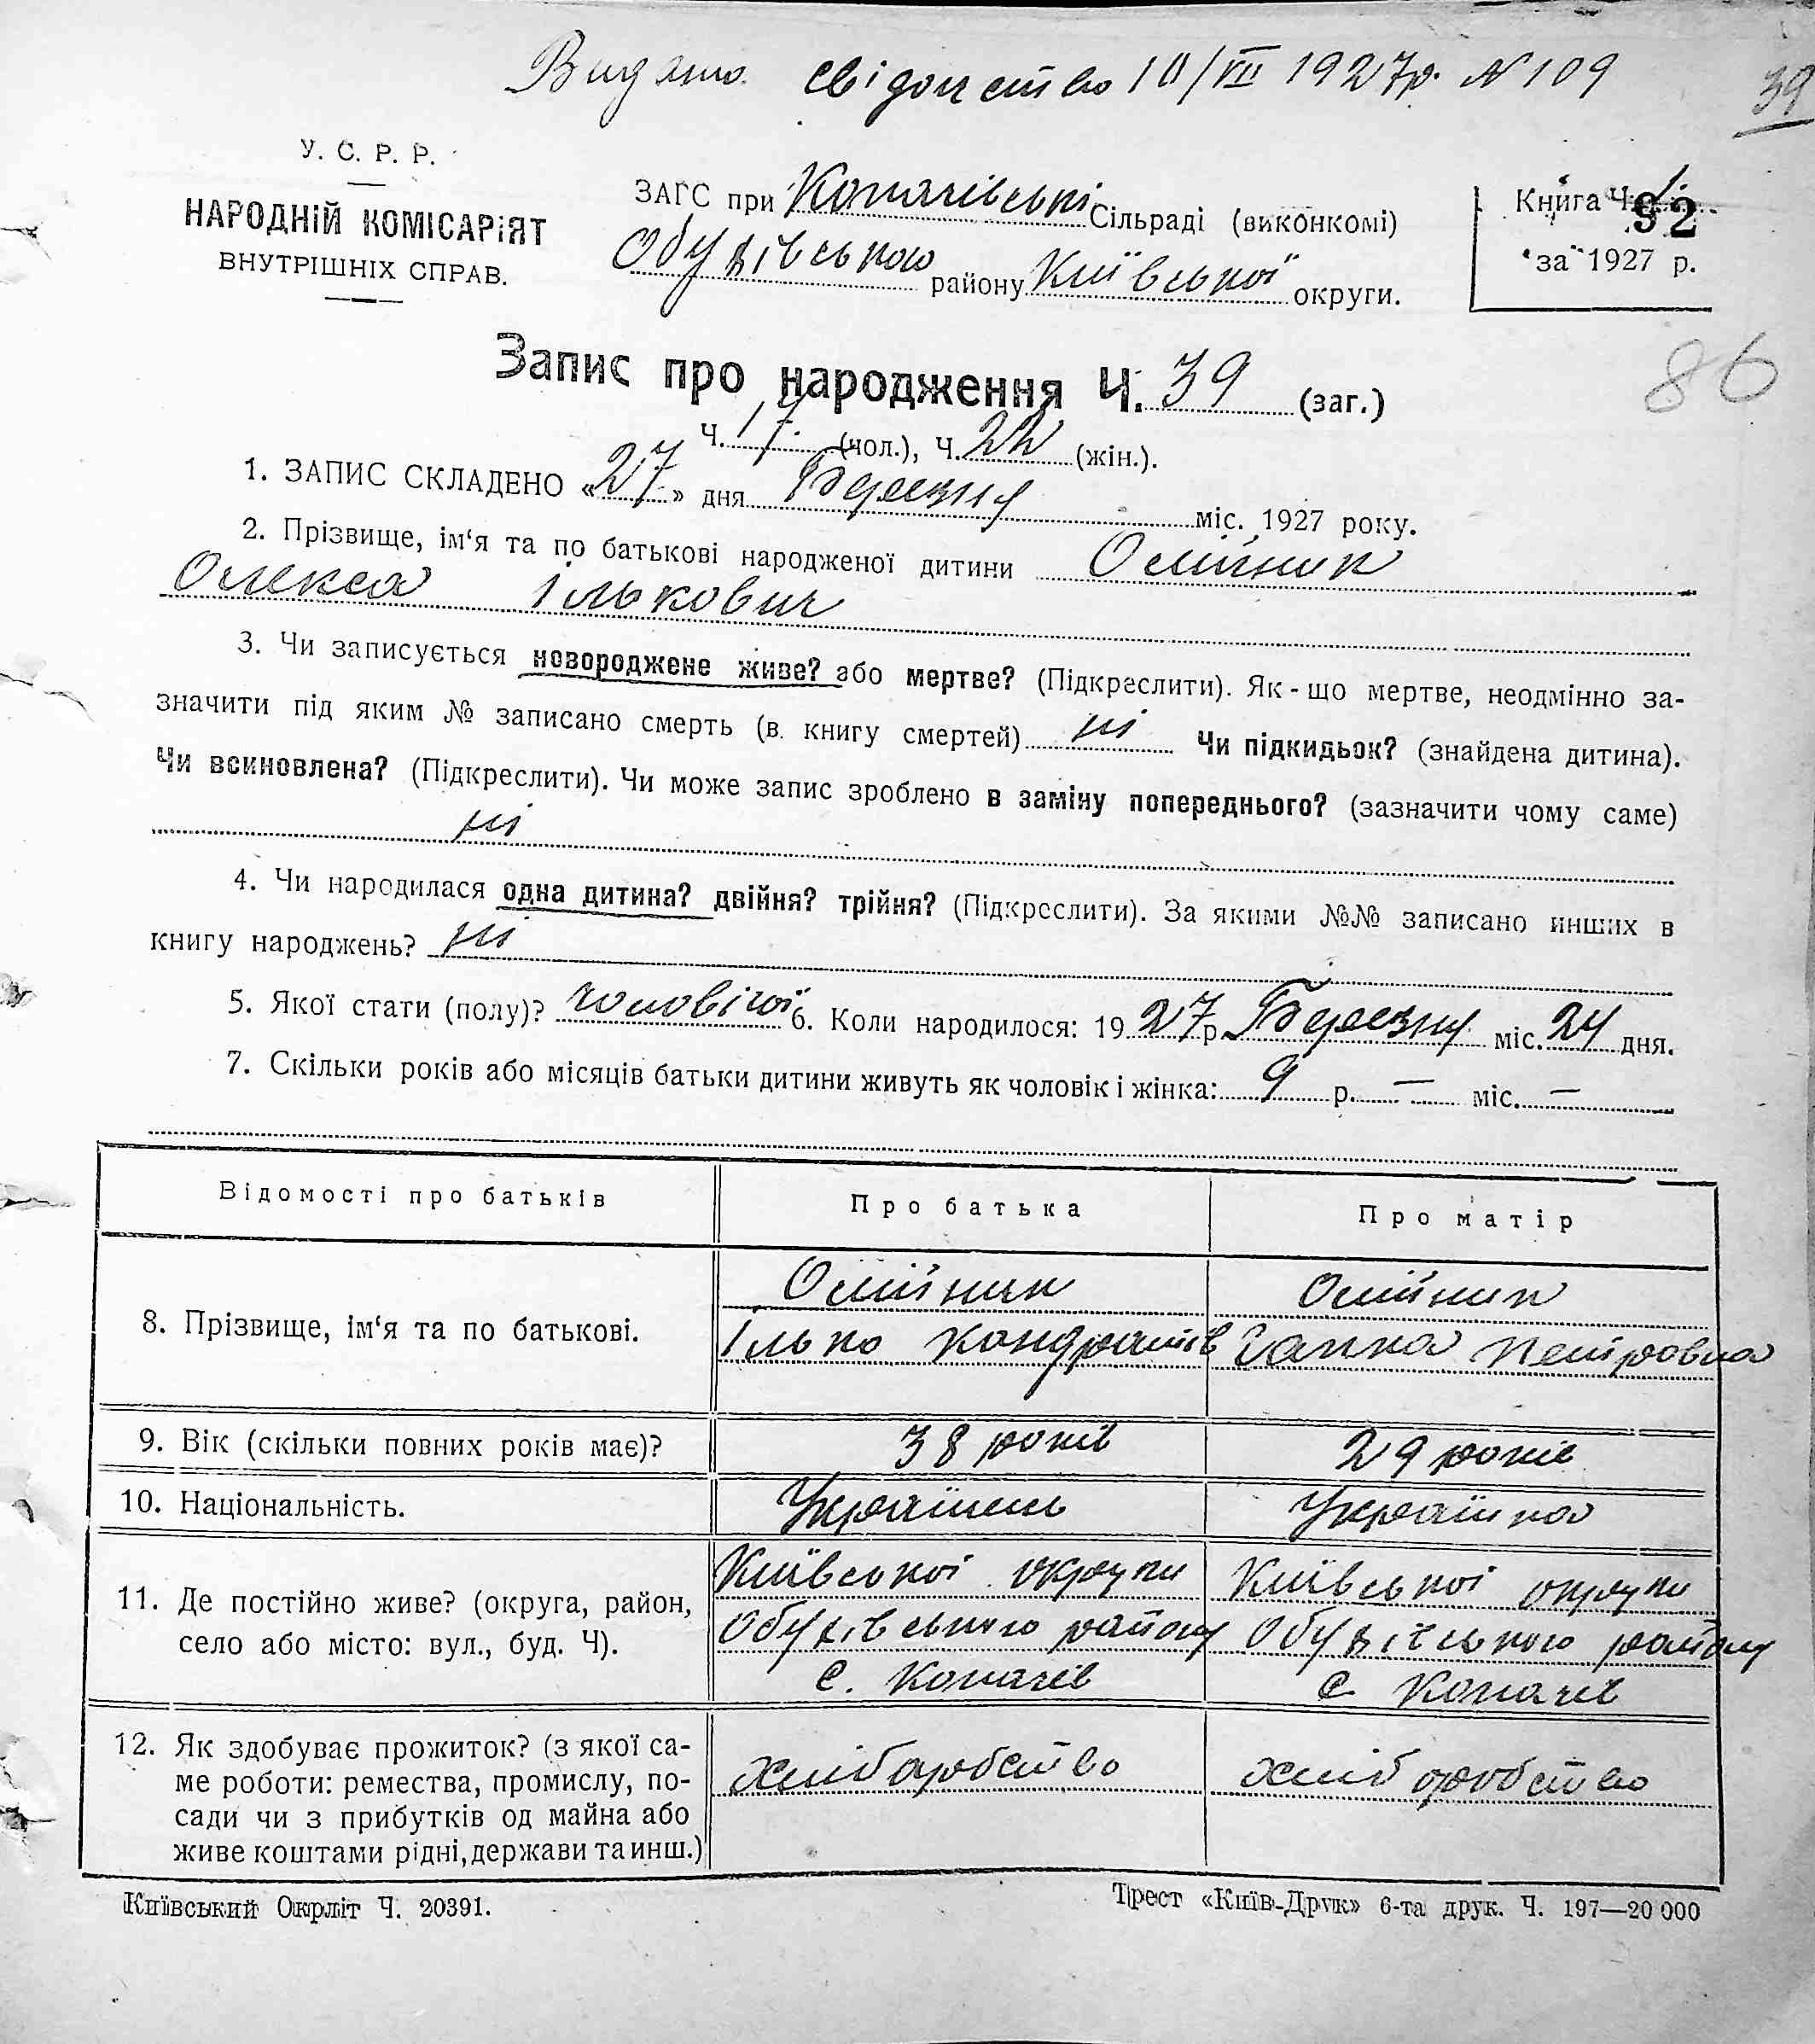 Видано свідоцтво 10/VII 1927р. N 109
39
У. С. Р. Р.
НАРОДНІЙ КОМІСАРІЯТ
ВНУТРІШНІХ СПРАВ.
ЗАГС при Копачівські Сільраді (виконкомі)
Обухівського району Київської округи.
Книга Ч.
92
за 1927 р.
86
Запис про народження Ч. 39 (заг.)
Ч. 17. (чол.), Ч. 22 (жін.).
1. ЗАПИС СКЛАДЕНО «27» дня Березня міс. 1927 року.
2. Прізвище, ім‘я та по батькові народженої дитини Олійник
Олекса Ількович
3. Чи записується новороджене живе? або мертве? (Підкреслити). Як-що мертве, неодмінно за-
значити під яким № записано смерть (в книгу смертей) ні Чи підкидьок? (знайдена дитина).
Чи всиновлена? (Підкреслити). Чи може запис зроблено в заміну попереднього? (зазначити чому саме)
ні
4. Чи народилася одна дитина? двійня? трійня? (Підкреслити). За якими №№ записано инших в
книгу народжень? ні
5. Якої стати (полу)? чоловічої 6. Коли народилося: 1927 р. Березня міс. 24 дня.
7. Скільки років або місяців батьки дитини живуть як чоловік і жінка: 9 р. — міс. —
Відомості про батьків Про батька Про матір
8. Прізвище, ім‘я та по батькові.
Олійник Олійник
Ілько Кондратів Ганна Петровна
9. Вік (скільки повних років має)? 38 років 29 років
10. Національність. Українець Українка
11. Де постійно живе? (округа, район,
село або місто: вул., буд. Ч).
Київської округи Київської округи
Обухівського району Обухівського району
С. Копачів С. Копачів
12. Як здобуває прожиток? (з якої са-
ме роботи: ремества, промислу, по-
сади чи з прибутків од майна або
живе коштами рідні, держави та инш.)
хліборобство хліборобство
Київський Окрліт Ч. 20391.
Трест «Київ-Друк» 6-та друк. Ч. 197—20 000